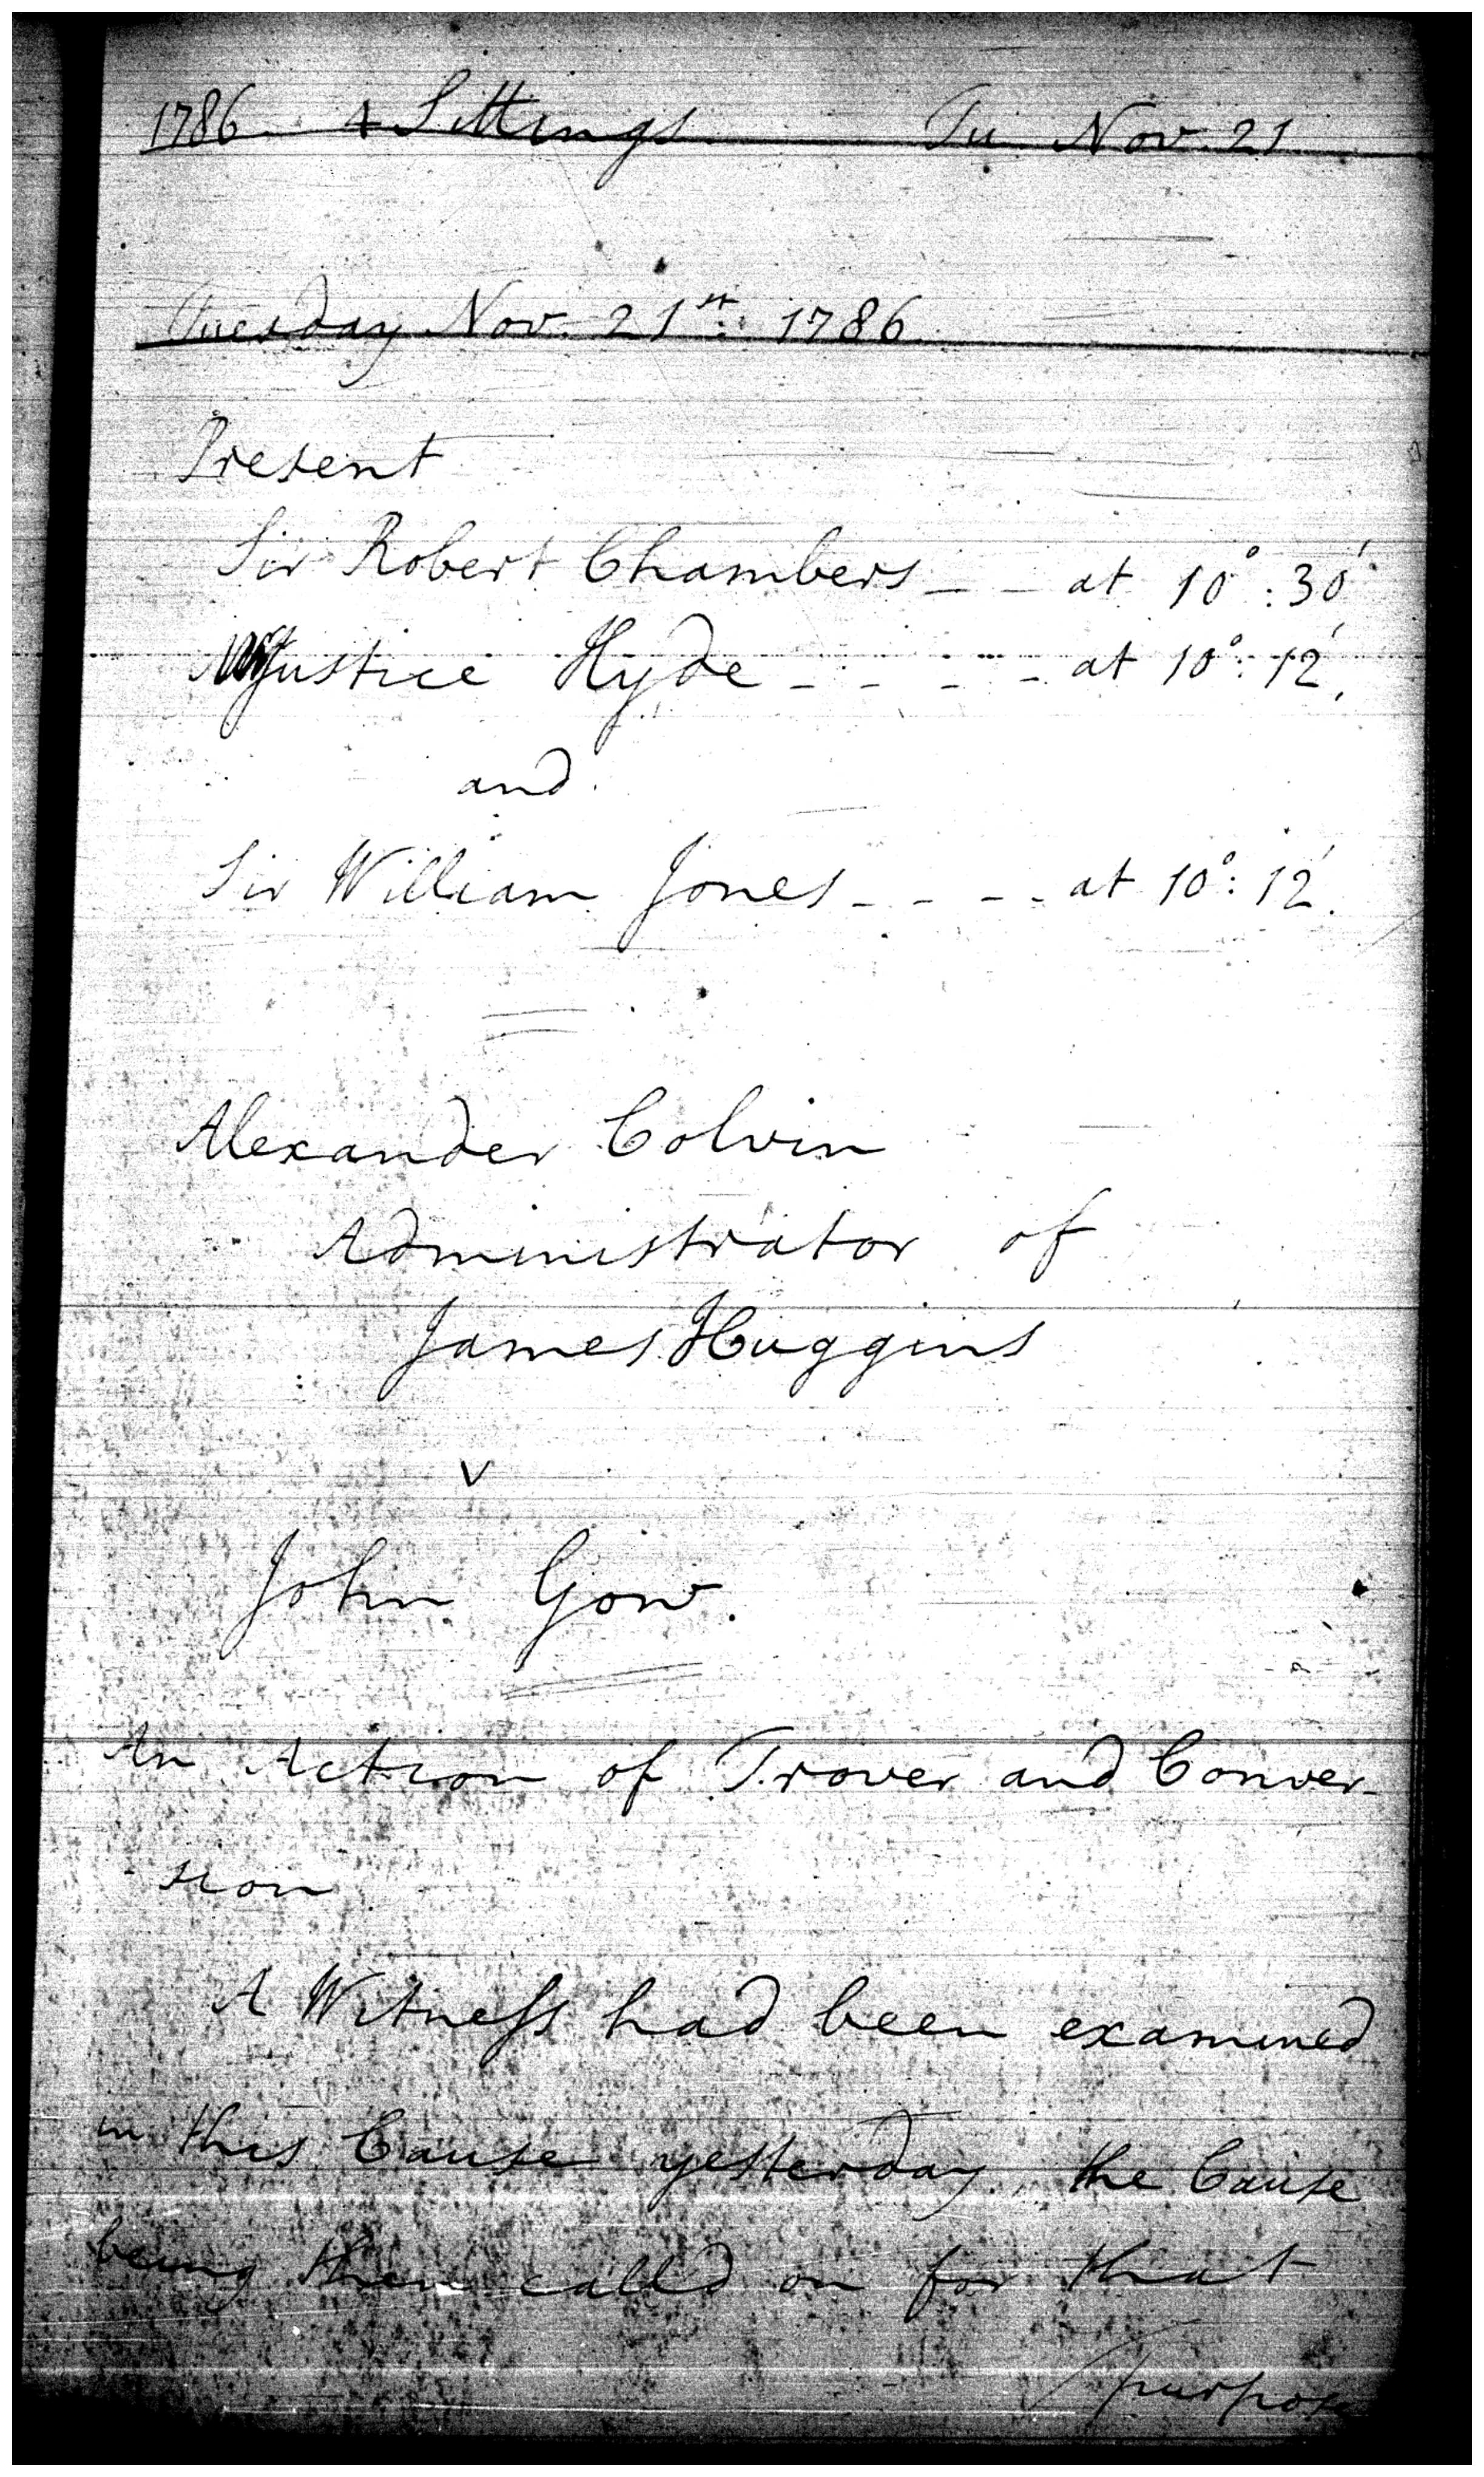 1786. 4 Sittings Tu. Nov. 21
Tuesday Nov. 21st: 1786.
Present
Sir Robert Chambers _ _ at 10°: 30'
Justice Hyde _ _ _ _ at 10°: 12'.
and
Sir William Jones _ _ _ _ at 10°: 12'.
Alexander Colvin
Administrator of
James Huggins
v
John Gow.
An Action of Trover and Conver-
-sion
A Witness had been examined
in this Cause yesterday, the Cause
being then calld on for that
purpose